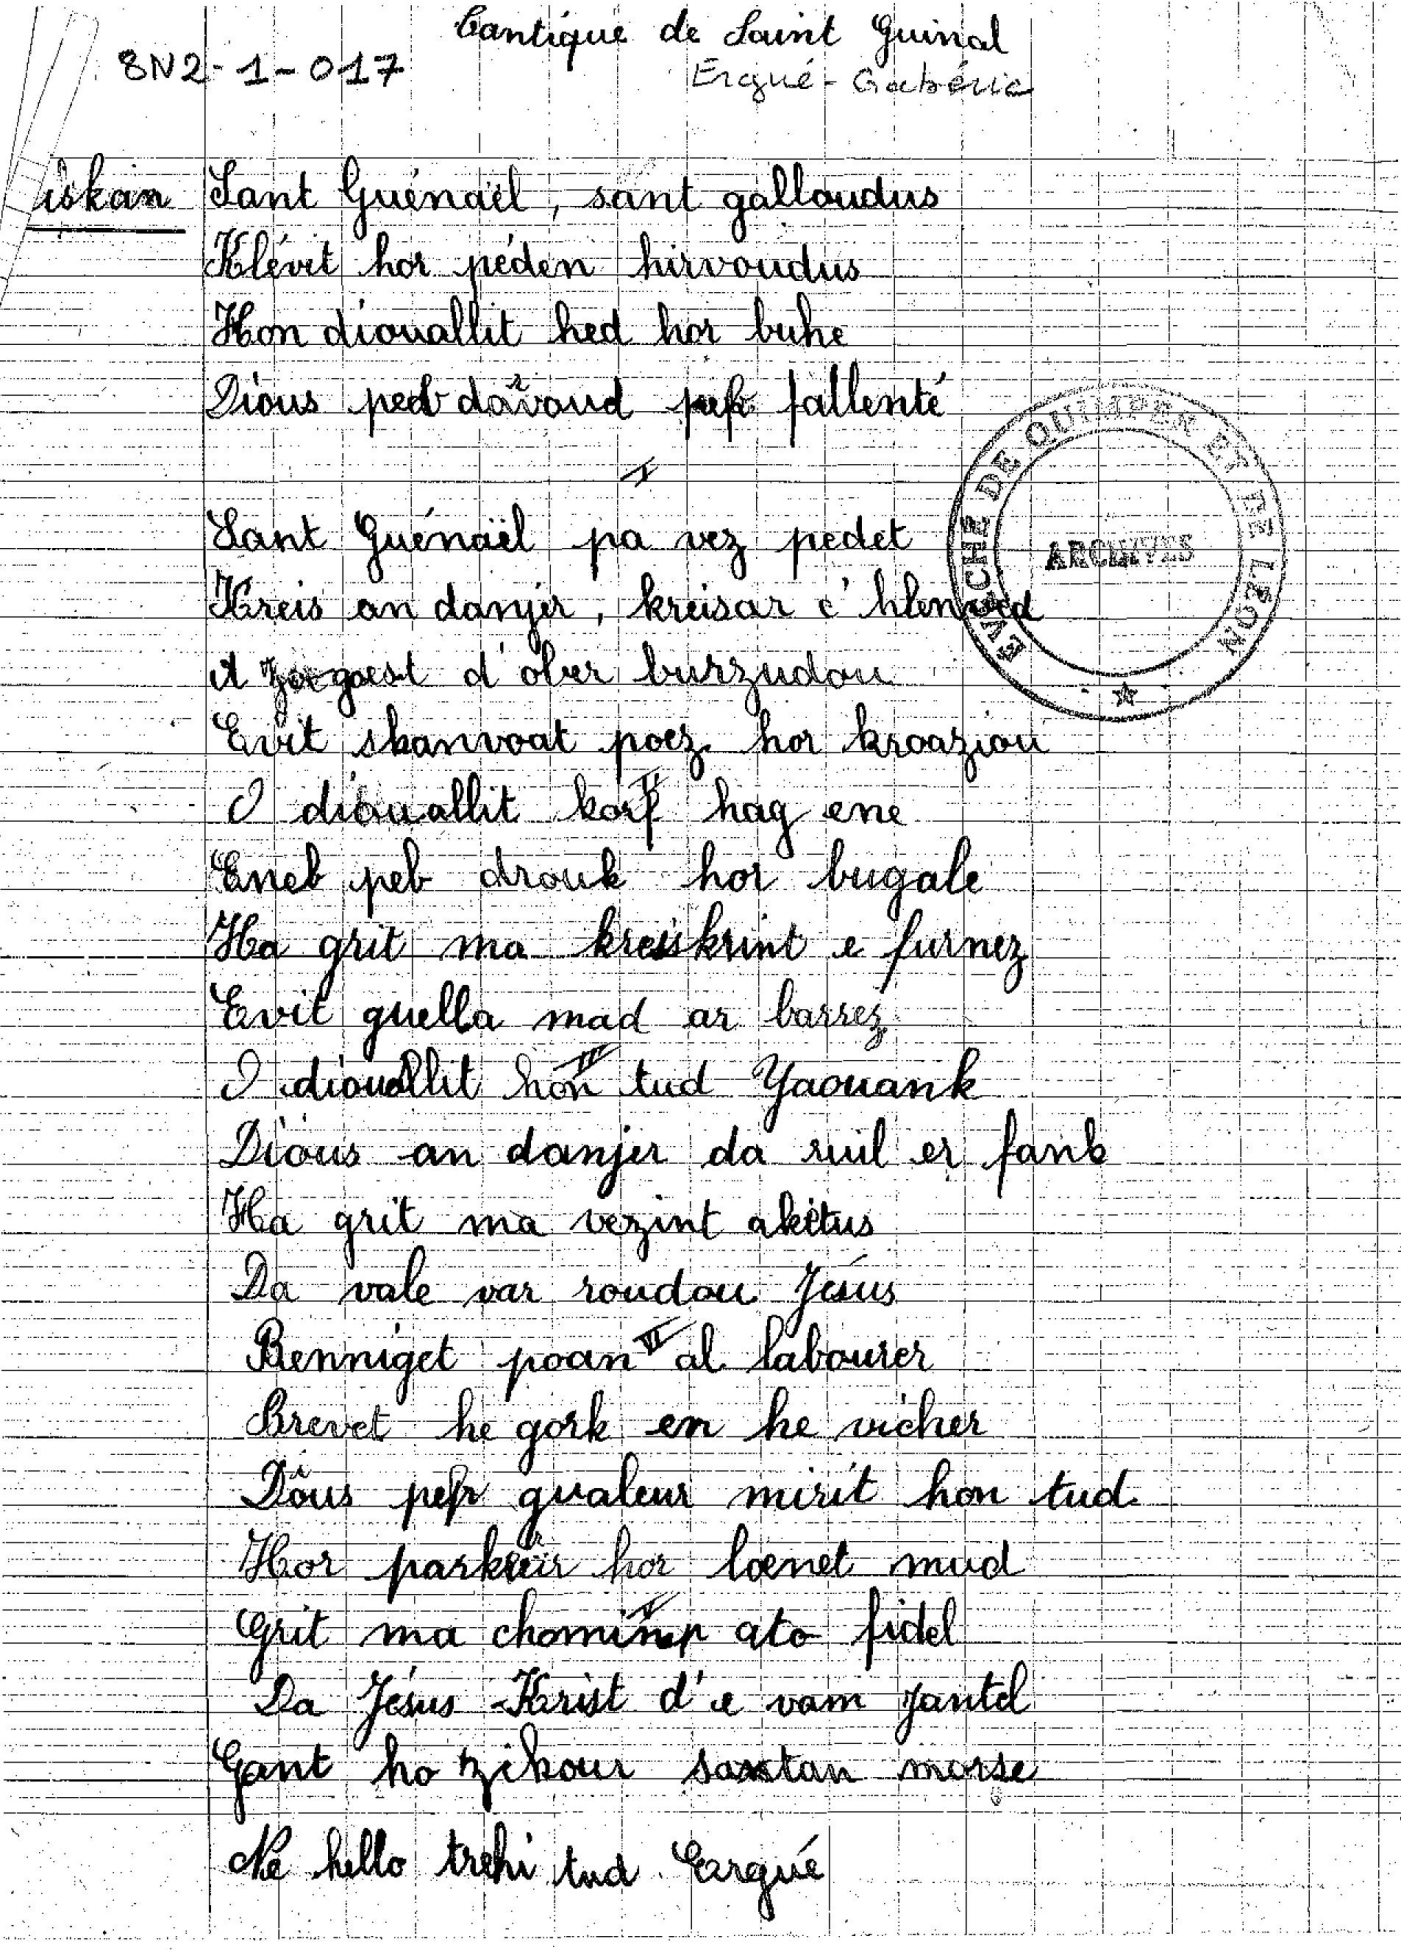 Cantique de Saint Guinal
8N2-1-017
Ergué-Gabéric
iskan
Sant Guénaël, sant galloudus
Klévit hor péden hirvoudus
Hon diouallit hed hor buhe
Dious peb fallenté
I
Sant Guénaël pa vez pedet
Kreis an danjer, kreisar c'hlenved
A goest d'ober burzudou
Evit skanvoat poez hor kroaziou
II
O diouallit korf hag ene
Eneb peb drouk hor bugale
Ha grit ma kreskint e furnez
Evit guella mad ar barrez
III
O diouallit hon tud Yaouank
Dious an danjer da ruil er fank
Ha grit ma vezint akétus
Da vale var roudou Jésus
VI
Benniget poan al labourer
Brevet he gork en he vicher
Dious pep gualeur mirit hon tud
Hor parkeier hor loenet mud
V
Grit ma chomimp ato fidel
Da Jésus-Krist d'e vam santel
Gant ho zikour satan morse
Ne hello trehi tud Ergué
EVECHE DE QUIMPER ET DE LÉON
ARCHIVES